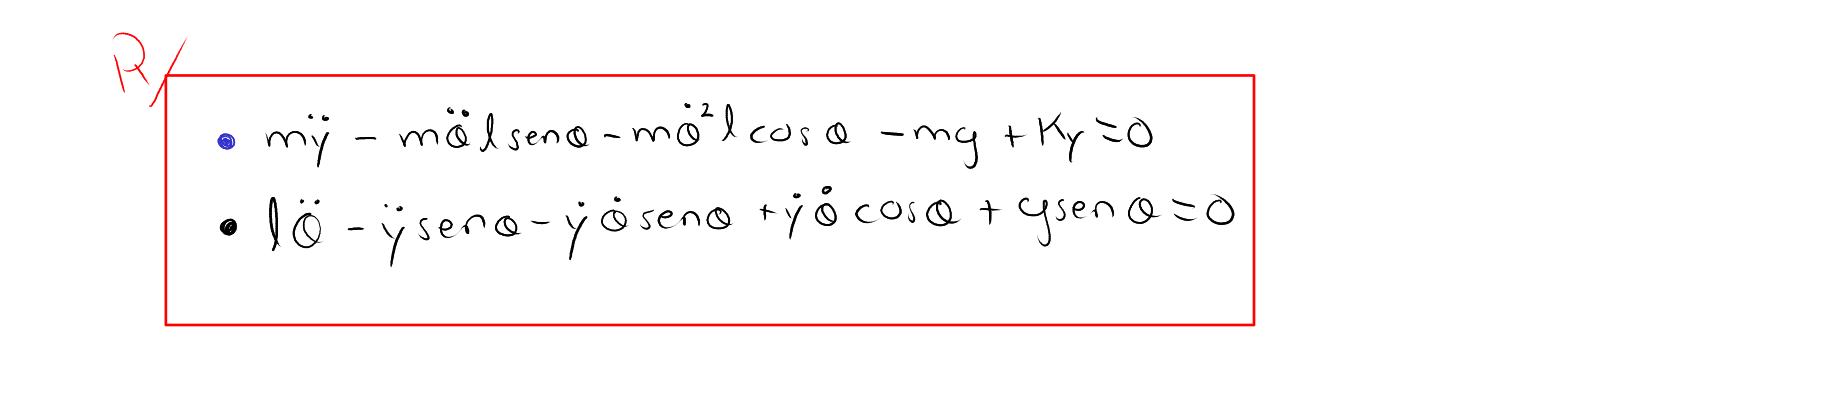 R/
• mÿ - mθ̈ l senθ - mθ̇² l cos θ - mg + Ky = 0
• lθ̈ - ÿ senθ - ẏ θ̇ senθ + ẏ θ̇ cosθ + g sen θ = 0